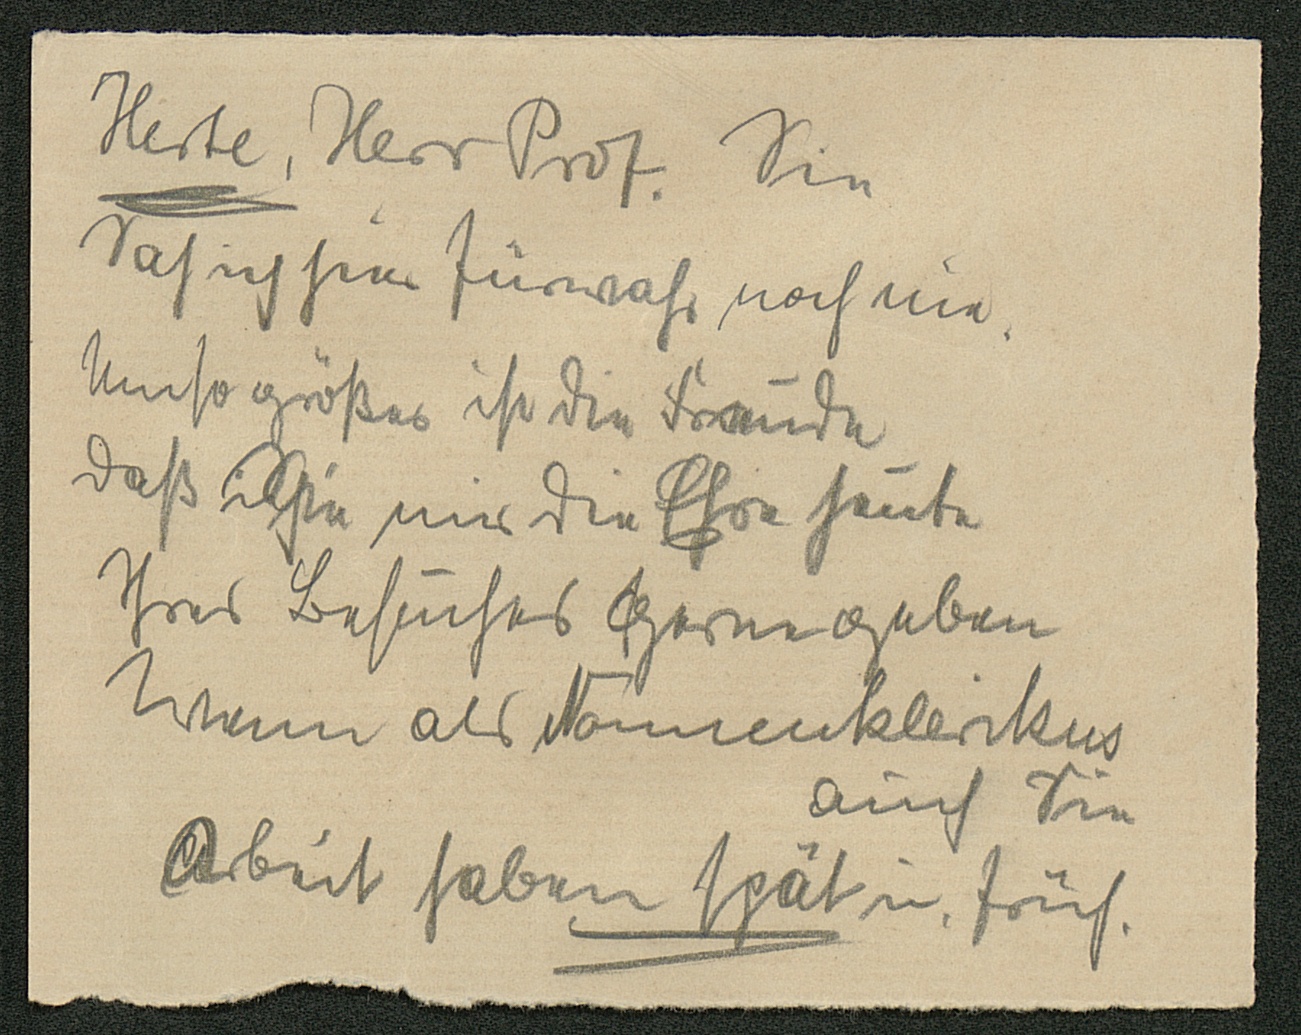 Herte, Herr Prof. Sie
Sah ich hier fürwahr noch nie.
Umso größer ist die Freude
daß Sie mir die Ehre heute
Ihres Besuches gerne geben
Wenn als Nonnenklerikus
auch Sie
Arbeit haben spät u. früh.